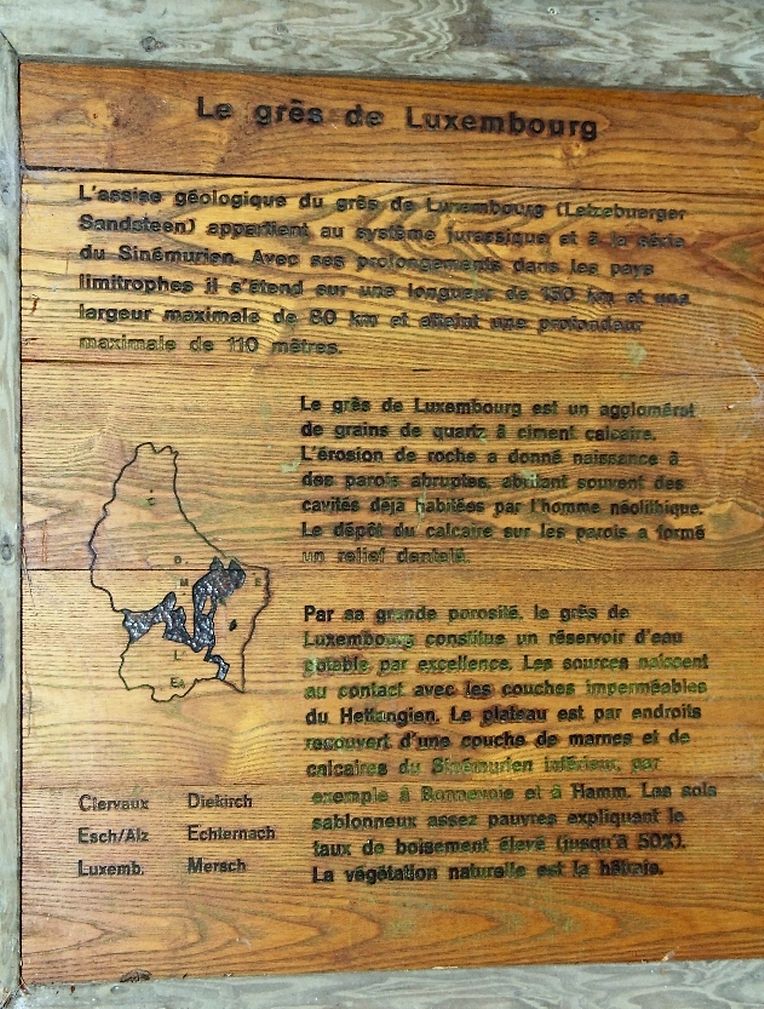 Le grès de Luxembourg
L'assise géologique du grès de Luxembourg (Letzebuerger
Sandsteen) appartient au système jurassique et à la série
du Sinémurien. Avec ses prolongements dans les pays
limitrophes il s'étend sur une longueur de 150 km et une
largeur maximale de 80 km et atteint une profondeur
maximale de 110 mètres.
Le grès de Luxembourg est un agglomérat
de grains de quartz à ciment calcaire.
L'érosion de roche a donné naissance à
des parois abruptes, abritant souvent des
cavités déjà habitées par l'homme néolithique.
Le dépôt du calcaire sur les parois a formé
un relief dentelé.
C
D.
M
E
L'
EA
Par sa grande porosité, le grès de
Luxembourg constitue un réservoir d'eau
potable par excellence. Les sources naissent
au contact avec les couches imperméables
du Hettangien. Le plateau est par endroits
recouvert d'une couche de marnes et de
calcaires du Sinémurien inférieur, par
exemple à Bonnevoie et à Hamm. Les sols
sablonneux assez pauvres expliquant le
taux de boisement élevé (jusqu'à 50%).
La végétation naturelle est la hêtraie.
Clervaux Diekirch
Esch/Alz Echternach
Luxemb. Mersch